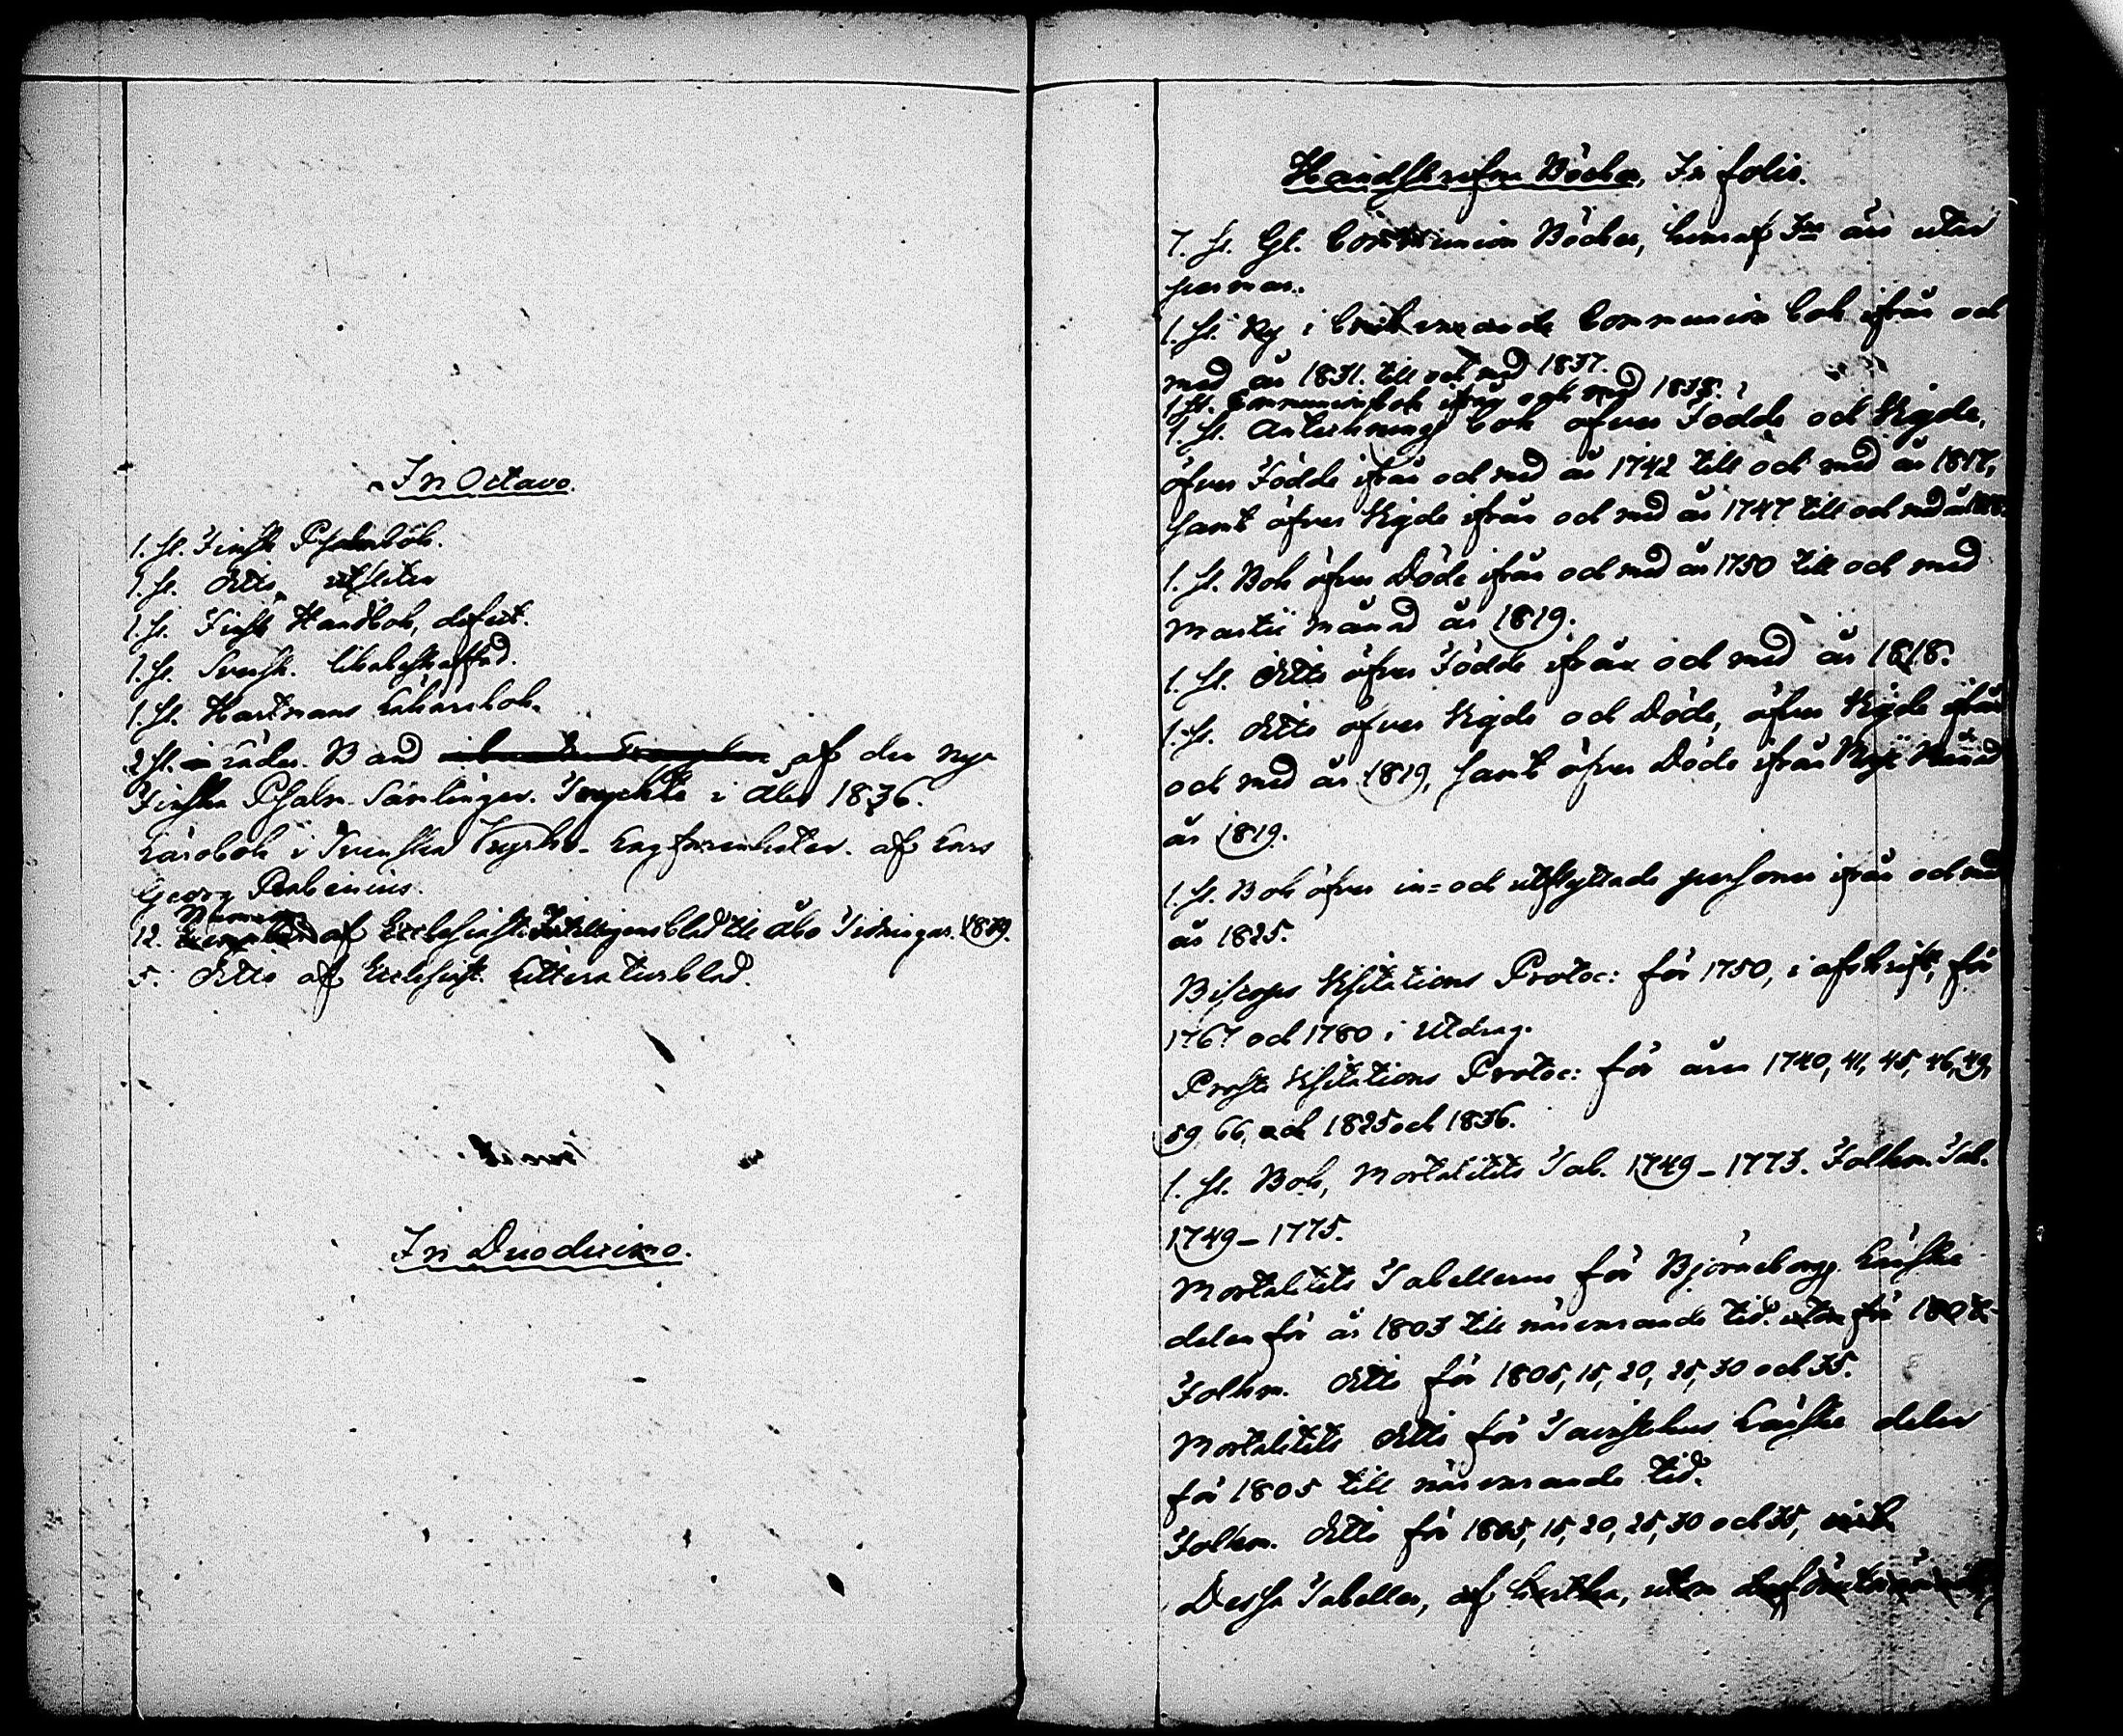 In Octavo.
1. st. Finsk Psalmbok.
1. st. ditto, utsliten
1. st. Finsk Handbok, defect.
1. st. Svensk.
1. st. Hartmans Läkarebok.
2 st. Band af den nya
Finska Psalm Samlingen. Tryckte i Åbo 1836.
Lärobok i Svenska Kyrko-Lagfarenheten. af Lars
Georg Rabenius.
12. Nummer af Ecclesiastikt Intelligensblad till Åbo Tidningar. 1809.
5. ditto af Ecclesiast. Litteraturblad.
In Duodecimo.
Handskrifne Böcker, In folio.
7. st. Gl. Communion Böcker, hvaraf 3ne äro utan
permar.
1. st. Ny i bruk varande Communion bok ifrån och
med år 1831. till och med 1837.
1 st. Communionbok ifrån och med 1838.
1. st. Antecknings bok öfver Födde och Vigde,
öfver Födde ifrån och med år 1742 till och med år 1817,
samt öfver Vigde ifrån och med år 1747 till och med år
1. st. Bok öfver Döde ifrån och med år 1750 till och med
Martii månad år 1819.
1. st. ditto öfver Födde ifrån och med år 1818.
1. st. ditto öfver Vigde och Döde, öfver Vigde ifrån
och med år 1819, samt öfver Döde ifrån Månad
år 1819.
1. st. Bok öfver in= och utflyttade personer ifrån och med
år 1825.
Biscops Visitations Protoc: för 1750, i afskrift, för
1767 och 1780 i Utdrag.
Prosts Visitations Protoc: för åren 1740, 41, 45, 46, 49,
59, 66, och 1825 och 1836.
1. st. Bok, Mortalitets Tab. 1749-1773. Folkm. Tab.
1749-1775.
Mortalitets Tabellerne för Björneborgs Länska
delen för år 1803 till närvarande tid. utom för
Folkm. ditto för 1805, 15, 20, 25, 30 och 35.
Mortalitets ditto för Tavastehus Länska delen
för 1805 till närvarande tid.
Folkm. ditto för 1805, 15, 20, 25, 30 och 35,
Dessa Tabeller, af utom